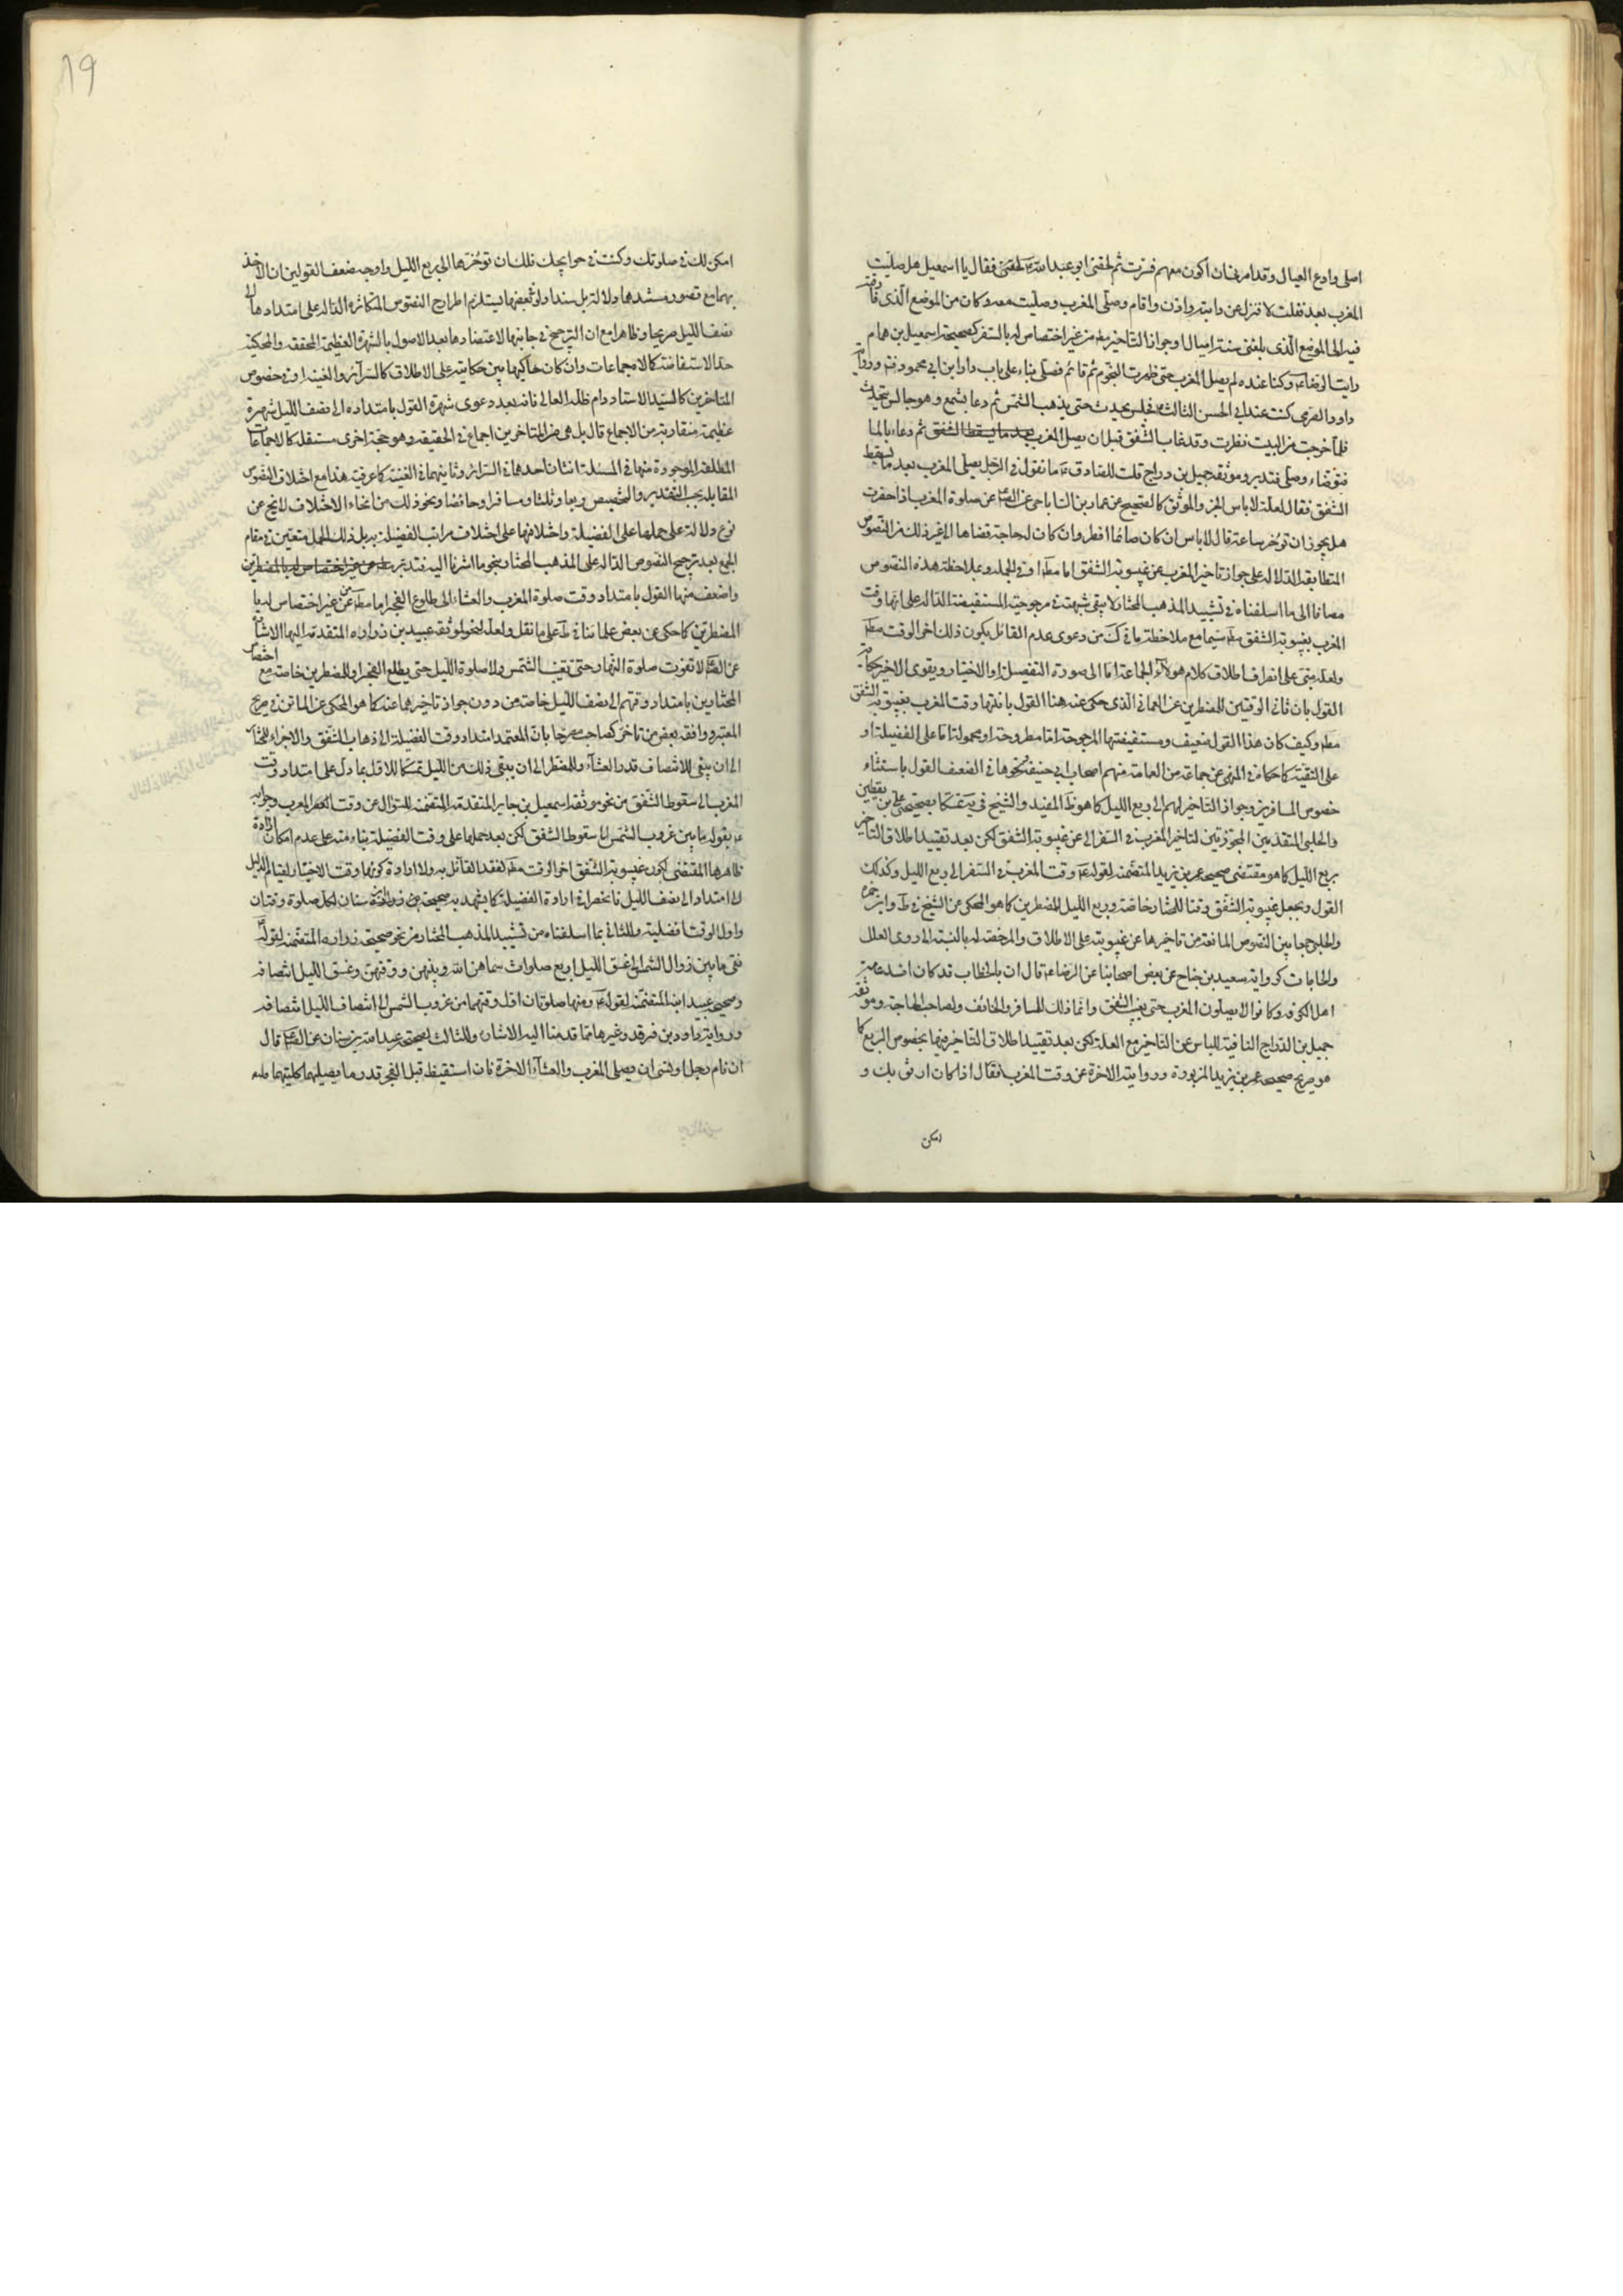 اصلى وادع العيال وقد امرنى ان اكون معهم فسرت ثم لحقنى ابو عبد الله ع لحقنى فقال يا اسمعيل هل صليت
المغرب بعد فقلت لا فنزل عن دابته واذن واقام وصلى المغرب وصليت معه وكان من الموضع الذى فارقته
فيه الى الموضع الذى بلغنى ستة اميال او جواز التاخير مط من غير اختصاص له بالسفر كصحيحة اسمعيل بن همام
رايت الرضا ع وكنا عنده لم يصل المغرب حتى ظهرت النجوم ثم قام فصلى بناء على باب دار ابن ابى محمود ورواية
داود الصرمى كنت عند ابى الحسن الثالث ع فجلس يحدث حتى يذهب الشمس ثم دعا بشمع وهو جالس يتحدث
فلما خرجت من البيت نظرت وقد غاب الشفق قبل ان يصل المغرب بعد ما يسقط الشفق ثم دعاء بالماء
فتوضاء وصلى فتدبر وموثقة جميل بن دراج قلت للصادق ع ما تقول فى الرجل يصلى المغرب بعد ما يسقط
الشفق فقال لعلة لا باس الخبر والموثق كالصحيح عن عمار بن الساباطى عن الص عن صلوة المغرب اذا حضرت
هل يجوز ان توخر ساعة قال لا باس ان كان صائما افطر وان كان له حاجة قضاها الى غير ذلك من النصوص
المتطابقة الدلالة على جواز تاخير المغرب عن غيبوبة الشفق اما مط او فى الجملة وبملاحظة هذه النصوص
مضافا الى ما اسلفناه فى تشييد المذهب المختار لا يبقى شبهة فى مرجوحية المستفيضة الدالة على انتهاء وقت
المغرب بغيبوبة الشفق مط سيما مع ملاحظة ما فى من دعوى عدم القائل بكون ذلك اخر الوقت مط
ولعله مبنى على انصراف اطلاق كلام هولاء الجماعة اما الى صورة التفصيل او الاختيار ويقوى الاخير حكاية
القول بان ثانى الوقتين للمضطرين عن العمانى الذى حكى عنه هنا القول بانتهاء وقت المغرب بغيبوبة الشفق
مط وكيف كان هذا القول ضعيف ومستفيضتها المرجوحة اما مطروحة او محمولة اما على الفضيلة او
على التقية كما حكاه فى المنتهى عن جماعة من العامة منهم اصحاب ابى حنيفة ونحوها فى الضعف القول باستثناء
خصوص المسافرين وجواز التاخير لهم الى ربع الليل كما هو المفيد والشيخ فى تمسكا بصحيحتى على بن يقطين
والحلبى المتقدمتين المجوزتين لتاخير المغرب فى السفر الى عن غيبوبة الشفق لكن بعد تقييد اطلاق التاخير
بربع الليل كما هو مقتضى صحيحة عمر بن يزيد المتضمنة لقوله ع وقت المغرب فى السفر الى ربع الليل وكذلك
القول بجعل غيبوبة الشفق وقتا للمختار خاصة وربع الليل للمضطرين كما هو المحكى عن الشيخ فى ط وابن حمزه
والحلبى جمعا بين النصوص المانعة من تاخيرها عن غيبوبته على الاطلاق والمرخصة له بالنسبة الى ذوى العلل
والحاجات كرواية سعيد بن جناح عن بعض اصحابنا عن الرضا ع قال ان ابا الخطاب قد كان افسد عامة
اهل الكوفة وكانوا لا يصلون المغرب حتى يغيب الشفق وانما ذلك للمسافر والخائف ولصاحب الحاجة وموثقة
جميل بن الدراج النافية للباس عن التاخير مع العلة لكن بعد تقييد اطلاق التاخير فيها بخصوص الربع كما
هو صريح صحيحة عمر بن يزيد المزبورة وروايته الاخرة عن وقت المغرب فقال اذا كان ارفق بك و
امكن
امكن لك فى صلوتك وكنت فى حوايجك فلك ان توخرها الى ربع الليل واوجه ضعف القولين ان الاخذ
بهما مع قصور مستندهما دلالة بل سندا ولو بعضهما يستلزم اطراح النصوص المتكاثرة الدالة على امتدادها الى
نصف الليل صريحا وظاهرا مع ان الترجيح فى جانبها لاعتضادها بعد الاصول بالشهرة العظيمة المحققة والمحكية
حد الاستفاضة كالاجماعات وان كان حاكيها بين حكايته على الاطلاق كالسرائر والغنية او فى خصوص
المتاخرين كالسيد الاستاد دام ظله العالى فانه بعد دعوى شهرة القول بامتداده الى نصف الليل شهرة
عظيمة متقاربة من الاجماع قال بل هى من المتاخرين اجماع فى الحقيقة وهو حجة اخرى مستقلة كالاجماعات
المطلقة الموجودة منها فى المسئلة اثنان احدهما فى السرائر وثانيهما فى الغنية كما عرفته هذا مع اختلاف النصوص
المقابلة بحسب التقدير والتخصيص ربعا وثلثا ومسافرا وحائضا ونحو ذلك من انحاء الاختلاف لا يخ عن
نوع دلالة على حملها على الفضيلة واختلافها على اختلاف مراتب الفضيلة بربل ذلك الحمل متعين فى مقام
الجمع بعد ترجيح النصوص الدالة على المذهب المختار بنحو ما اشرنا اليه فتدبر مط من غير اختصاص له بالمضطرين
واضعف منهما القول بامتداد وقت صلوة المغرب والعشاء الى طلوع الفجر اما مط من غير اختصاص له با
المضطرين كما حكى عن بعض علمائنا فى ط على ما نقل ولعله لنحو لموثقة عبيد بن زرارة المتقدمة اليها الاشارة
عن الص لا تفوت صلوة النهار حتى تغيب الشمس ولا صلوة الليل حتى يطلع الفجر او للمضطرين خاصة مع اختصاص
المختارين بامتداد وقتهم الى نصف الليل خاصة من دون جواز تاخيرهما عنه كما هو المحكى عن الماتن فى صريح
المعتبر ووافقه بعض من تاخر كصاحب مصرحا بان المعتمد امتداد وقت الفضيلة الى ذهاب الشفق والاجزاء للمختار
الى ان يبقى للانتصاف قدر العشاء وللمضطر الى ان يبقى ذلك من الليل تمسكا للاول بما دل على امتداد وقت
المغرب الى سقوط الشفق من نحو موثقة اسمعيل بن جابر المتقدمة المتضمنة للسؤال عن وقت المغرب وجوابه
ع بقوله ما بين غروب الشمس الى سقوط الشفق لكن بعد حملها على وقت الفضيلة بناء منه على عدم امكان ارادة
ظاهرها المقتضى لكون غيبوبة الشفق اخر الوقت مط لفقد القائل به ولا ارادة كونها وقت الاختيار لقيام الدليل
الى امتداد الى نصف الليل فانحصر فى ارادة الفضيلة كما يشهد به صحيحة ابن سنان لكل صلوة وقتان
واول الوقت افضليته وللثانى بما اسلفناه من تشييد المذهب المختار من نحو صحيحة زرارة المتضمنة لقوله
ففى ما بين زوال الشمس الى غسق الليل اربع صلوات سماهن الله وبينهن ووقتهن وغسق الليل انتصافه
وصحيحة عبيد ابنه المتضمنة لقوله ع ومنها صلوتان اول وقتهما من غروب الشمس الى انتصاف الليل انتصافه
ورواية داود بن فرقد وغيرها مما قدمنا اليه الاشارة وللثالث بصحيحة عبد الله بن سنان عن الص قال
ان نام رجل او نسى ان يصلى المغرب والعشاء الاخرة فان استيقظ قبل الفجر قدر ما يصليهما كليتهما فليصلهما